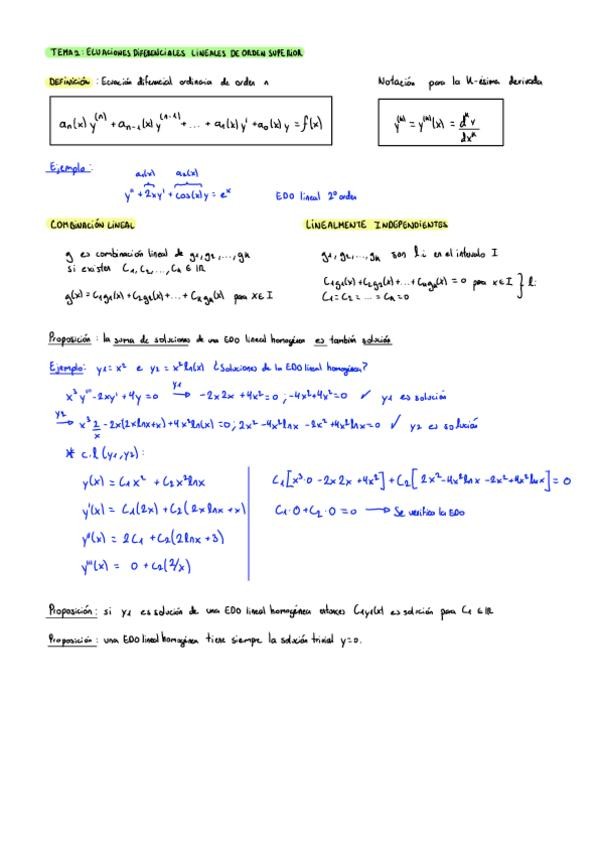 TEMA 2: ECUACIONES DIFERENCIALES LINEALES DE ORDEN SUPERIOR
DEFINICIÓN: Ecuación diferencial ordinaria de orden n
aₙ(x) y⁽ⁿ⁾ + aₙ₋₁(x) y⁽ⁿ⁻¹⁾ + ... + a₁(x) y' + a₀(x) y = f(x)
Notación para la K-ésima derivada
y⁽ᵏ⁾ = y⁽ᵏ⁾(x) = dᵏy/dxᵏ
Ejemplo:
a₁(x) a₀(x)
y'' + 2xy' + cos(x)y = eˣ EDO lineal 2º orden
COMBINACIÓN LINEAL
g es combinación lineal de g₁, g₂, ..., gₖ
si existen C₁, C₂, ..., Cₖ ∈ ℝ
g(x) = C₁g₁(x) + C₂g₂(x) + ... + Cₖgₖ(x) para x ∈ I
LINEALMENTE INDEPENDIENTES
g₁, g₂, ..., gₖ son l.i en el intervalo I
C₁g₁(x) + C₂g₂(x) + ... + Cₖgₖ(x) = 0 para x ∈ I } l.i
C₁ = C₂ = ... = Cₖ = 0
Proposición: la suma de soluciones de una EDO lineal homogénea es también solución
Ejemplo: y₁ = x² e y₂ = x² ln(x) ¿Soluciones de la EDO lineal homogénea?
x³y''' - 2xy' + 4y = 0 y₁→ -2x2x + 4x² = 0; -4x² + 4x² = 0 ✓ y₁ es solución
y₂→ x³ 2/x - 2x(2x lnx + x) + 4x² ln(x) = 0; 2x² - 4x² lnx - 2x² + 4x² lnx = 0 ✓ y₂ es solución
* c.l (y₁, y₂):
y(x) = C₁x² + C₂x² lnx
y'(x) = C₁(2x) + C₂(2x lnx + x)
y''(x) = 2C₁ + C₂(2lnx + 3)
y'''(x) = 0 + C₂(2/x)
C₁[x³·0 - 2x2x + 4x²] + C₂[2x² - 4x² lnx - 2x² + 4x² lnx] = 0
C₁·0 + C₂·0 = 0 → Se verifica la EDO
Proposición: si y₁ es solución de una EDO lineal homogénea entonces C₁y₁(x) es solución para C₁ ∈ ℝ
Proposición: una EDO lineal homogénea tiene siempre la solución trivial y=0.